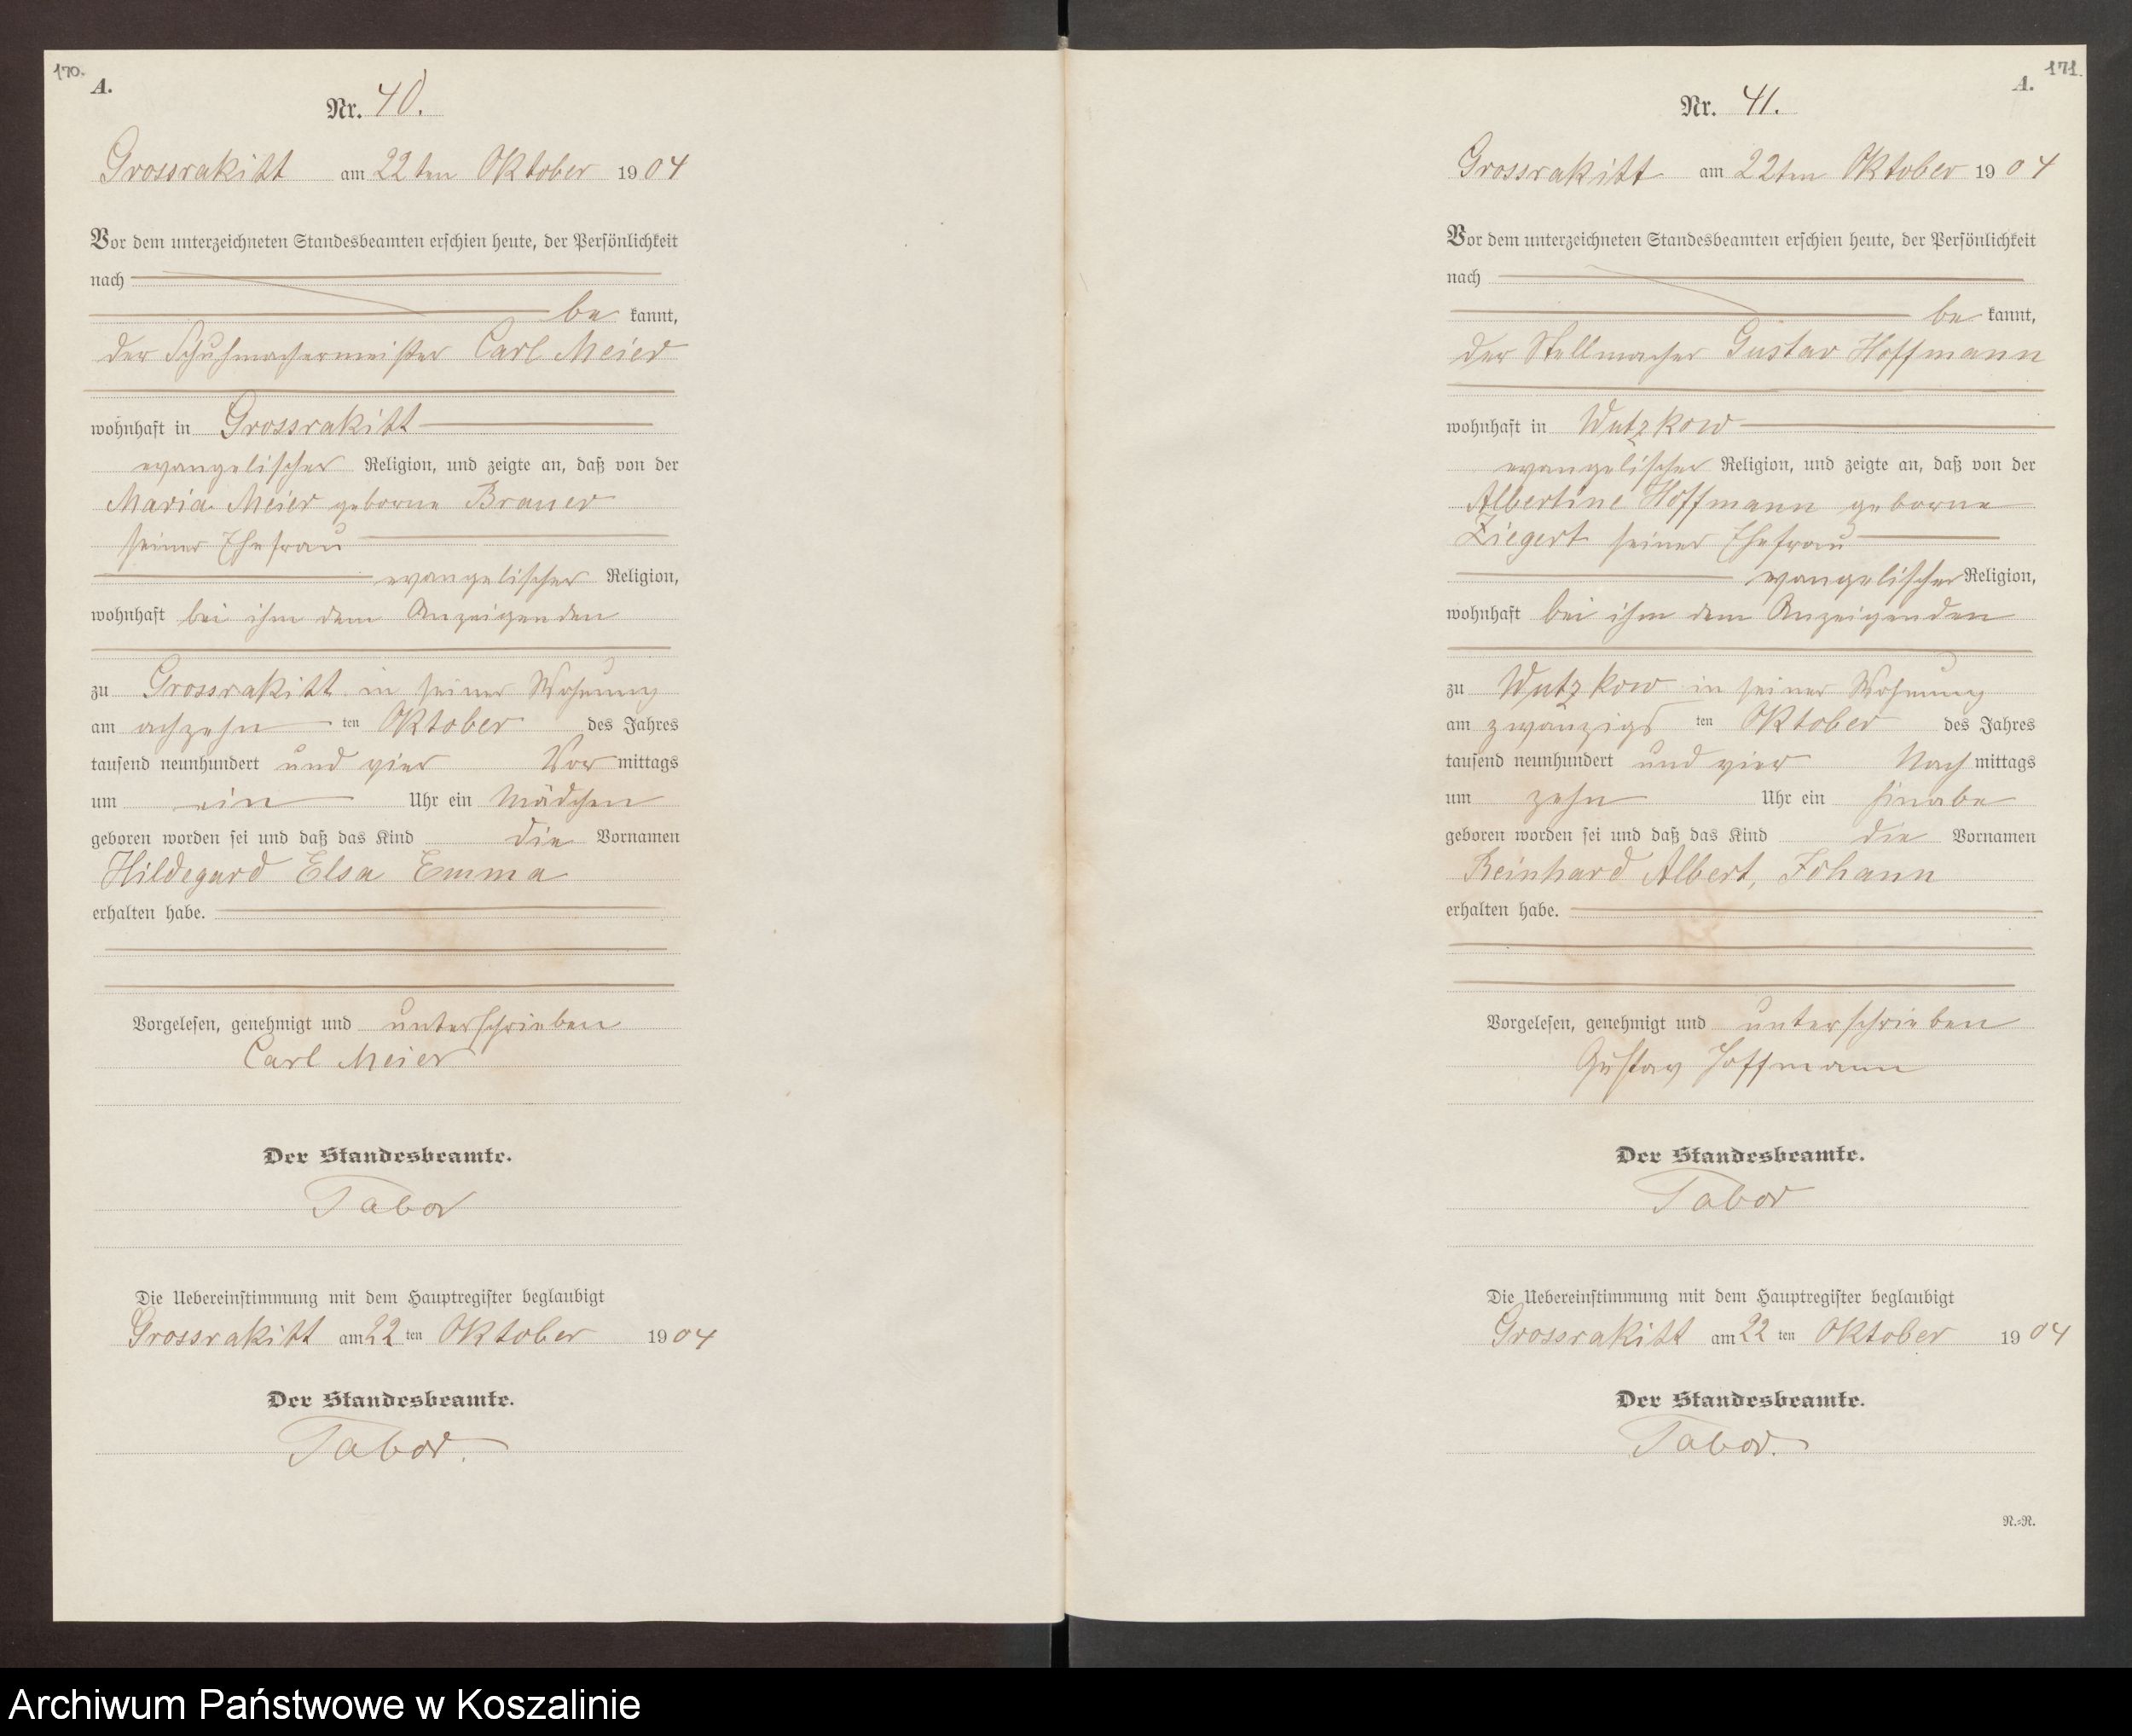 170.
A.
Nr. 40.
Grossrakitt am 22ten Oktober 1904
Vor dem unterzeichneten Standesbeamten erschien heute, der Persönlichkeit
nach
be kannt,
der Schuhmachermeister Carl Meier
wohnhaft in Grossrakitt
evangelischer Religion, und zeigte an, daß von der
Maria Meier geborne Brauer
seiner Ehefrau
evangelischer Religion,
wohnhaft bei ihm dem Anzeigenden
zu Grossrakitt in seiner Wohnung
am achzehn ten Oktober des Jahres
tausend neunhundert und vier Vor mittags
um ein Uhr ein Mädchen
geboren worden sei und daß das Kind die Vornamen
Hildegard Elsa Emma
erhalten habe.
Vorgelesen, genehmigt und unterschrieben
Carl Meier
Der Standesbeamte.
Tabor
Die Uebereinstimmung mit dem Hauptregister beglaubigt
Grossrakitt am 22 ten Oktober 1904
Der Standesbeamte.
Tabor.
171.
A.
Nr. 41.
Grossrakitt am 22ten Oktober 1904
Vor dem unterzeichneten Standesbeamten erschien heute, der Persönlichkeit
nach
be kannt,
der Stellmacher Gustav Hoffmann
wohnhaft in Wutzkow
evangelischer Religion, und zeigte an, daß von der
Albertine Hoffmann geborne
Ziegert seiner Ehefrau
evangelischer Religion,
wohnhaft bei ihm dem Anzeigenden
zu Wutzkow in seiner Wohnung
am zwanzigs ten Oktober des Jahres
tausend neunhundert und vier Nach mittags
um zehn Uhr ein Knabe
geboren worden sei und daß das Kind die Vornamen
Reinhard Albert, Johann
erhalten habe.
Vorgelesen, genehmigt und unterschrieben
Gustav Hoffmann
Der Standesbeamte.
Tabor
Die Uebereinstimmung mit dem Hauptregister beglaubigt
Grossrakitt am 22 ten Oktober 1904
Der Standesbeamte.
Tabor.
N.=R.
Archiwum Państwowe w Koszalinie